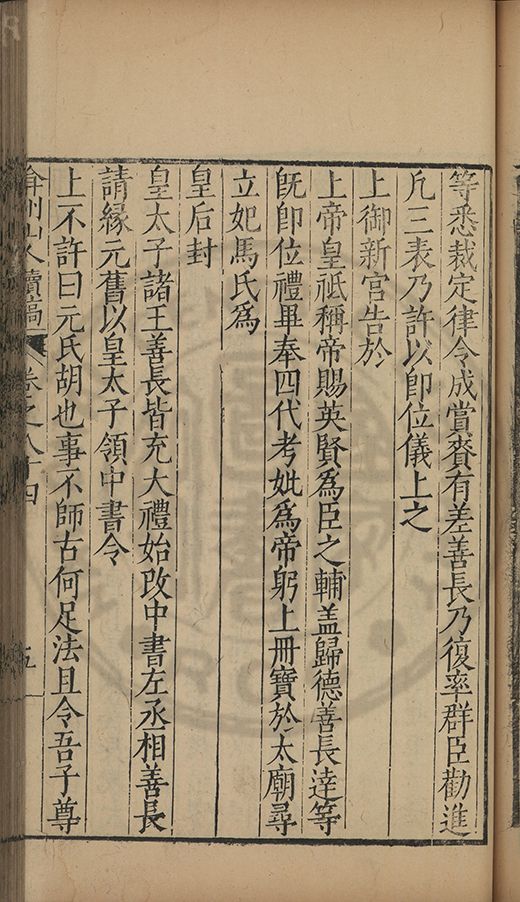 等悉裁定律令成賞賚有差善長乃復率群臣勸進
凡三表乃許以即位儀上之
上御新宮告於
上帝皇祗稱帝賜英賢為臣之輔蓋歸德善長達等
既即位禮畢奉四代考妣為帝躬上冊寶於太廟尋
立妃馬氏為
皇后封
皇太子諸王善長皆充大禮始改中書左丞相善長
請緣元舊以皇太子領中書令
上不許曰元氏胡也事不師古何足法且令吾子尊
弇州山人續稿 卷之八十四 五